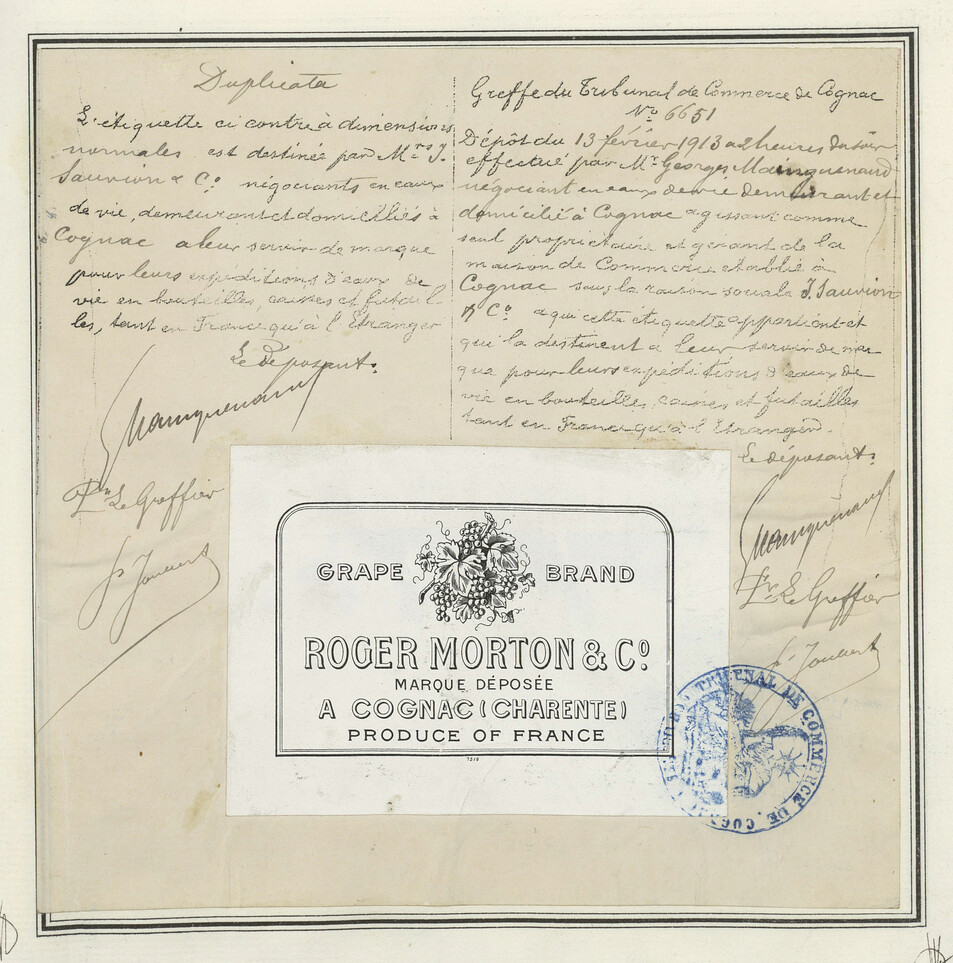 Duplicata
L'étiquette ci contre à dimensions
normales est destinée par Mrs J.
Sauvion & Co négociants en eaux
de vie, demeurant et domiciliés à
Cognac a leur servir de marque
pour leurs expéditions d'eaux de
vie en bouteilles, caisses et futail
les, tant en France qu'à l'Etranger
Le déposant.
Mainguenaud
Pr Le Greffier
Greffe du Tribunal de Commerce de Cognac
No 6651
Dépôt du 13 février 1913 a 2 heures du soir
effectué par Mr Georges Mainguenaud
négociant en eaux de vie demeurant et
domicilié à Cognac agissant comme
seul propriétaire et gérant de la
maison de Commerce etablie à
Cognac sous la raison sociale J. Sauvion
& Co a qui cette étiquette appartient et
qui la destinent a leur servir de mar
que pour leurs expéditions d'eaux de
vie en bouteilles, caisses et futailles
tant en France qu'à l'Etranger.
Le déposant.
Mainguenaud
Pr Le Greffier
GRAPE BRAND
ROGER MORTON & Co
MARQUE DÉPOSÉE
A COGNAC (CHARENTE)
PRODUCE OF FRANCE
TRIBUNAL DE COMMERCE DE COGNAC